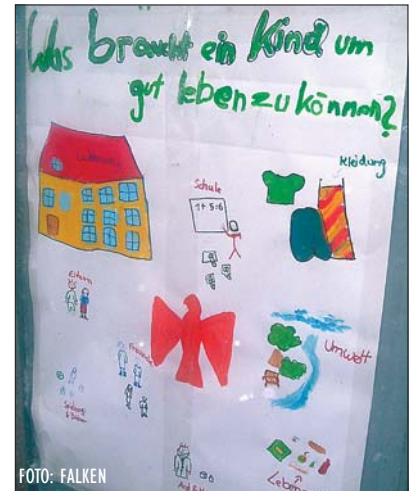 Was braucht ein Kind um
gut leben zu können?
Kleidung
Schule
1+5=6
Eltern
Freunde
Umwelt
FOTO: FALKEN